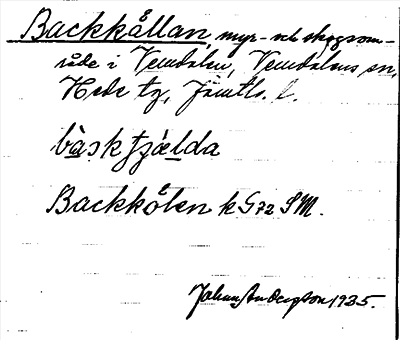 Backkållan, myr- och skogsom-
råde i Vemdalen, Vemdalens sn,
Hede tg, Jämtl. l.
båsktjælda
Backkölen k G72 SM.
Johan Anderson 1935.